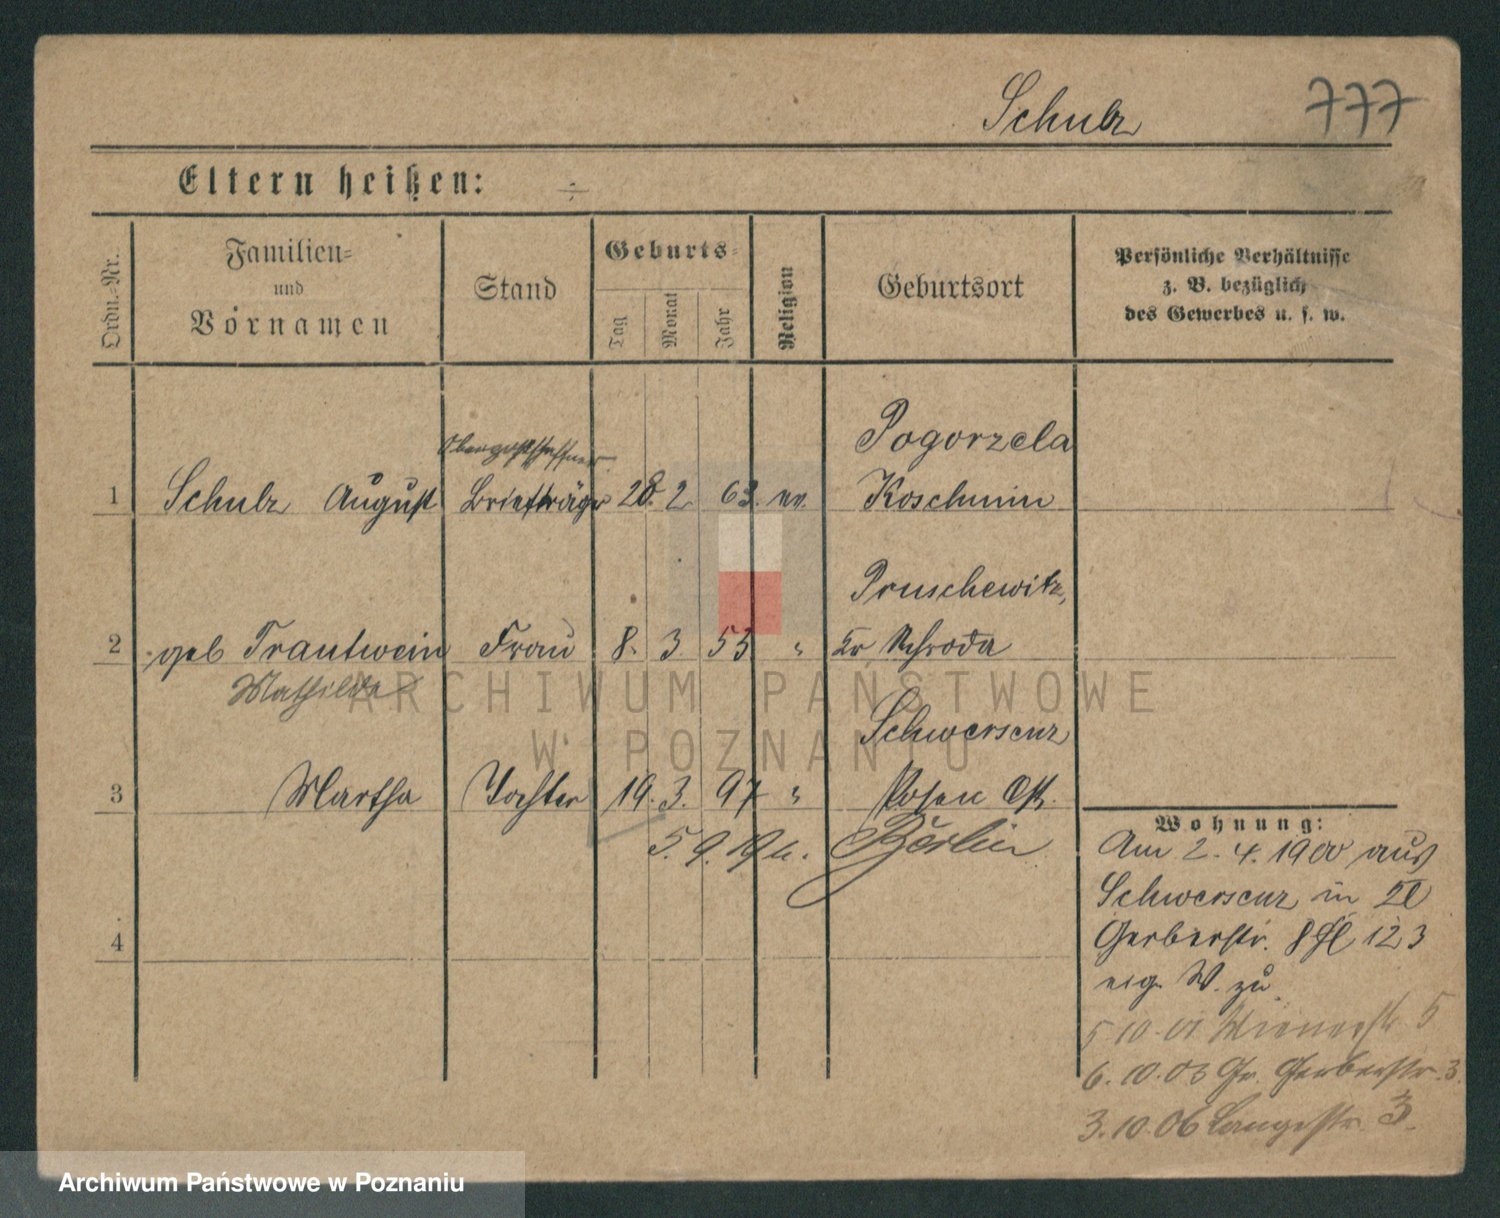 Schulz 777
Eltern heißen: ÷
Ordn.-Nr.
Familien-
und
Vornamen
Stand
Geburts-
Tag
Monat
Jahr
Religion
Geburtsort
Persönliche Verhältnisse
z. B. bezüglich
des Gewerbes u. s. w.
Oberpostschaffner
Pogorzela
1 Schulz August Briefträger 28. 2. 63. ev. Koschmin
Pruschewitz,
2 geb Trautwein Frau 8. 3 55 " Kr Schroda
Mathilde
Schwersenz
3 Martha Tochter 19. 3. 97 " Posen Ost.
5. 9. Berlin
4
Wohnung:
Am 2. 4. 1900 aus
Schwersenz in
Gerberstr. 8 123
eig. W. zu
5 10. 01 Wienerstr 5
6. 10. 03 Gr. Gerberstr. 3.
3. 10 06 Langestr. 3.
ARCHIWUM PAŃSTWOWE
W POZNANIU
Archiwum Państwowe w Poznaniu